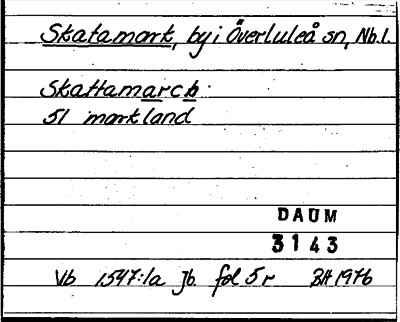 Skatamark, by i Överluleå sn, Nb.l.
Skattamarck
51 markland
DAUM
3143
Vb 1547:1a Jb. fol 5r BH 1976